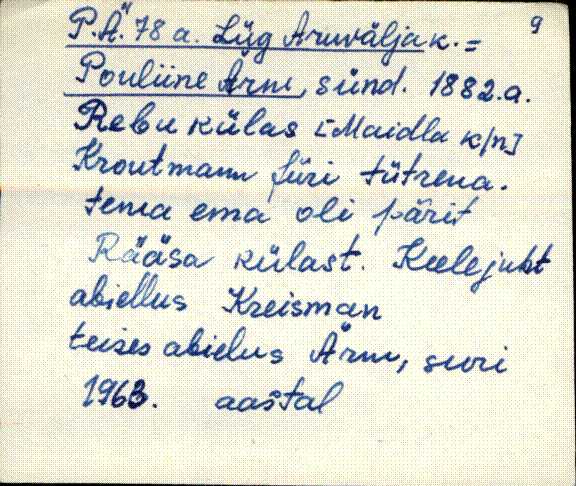 9
P.Ä. 78 a. Lüg Aruvälja k. =
Pouliine Ärm, sünd. 1882.a.
Rebu külas [Maidla k/n]
Kroutmann Jüri tütrena.
tema ema oli pärit
Rääsa külast. Keelejuht
abiellus Kreisman
teises abielus Ärm, suri
1963. aastal